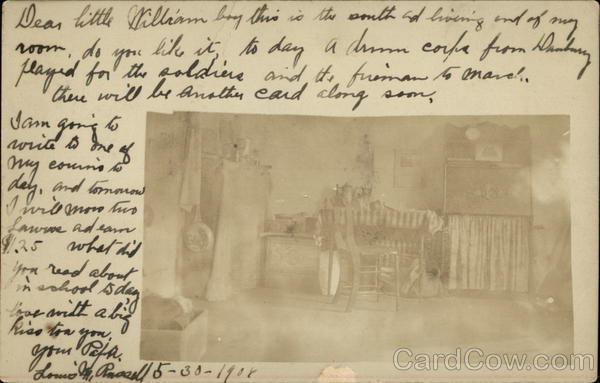 Dear little William boy this is the south ad living end of my
room, do you like it, to day a drum corps from Danbury
played for the soldiers and the fireman to march.
there will be another card along soon.
I am going to
write to one of
my cousins to
day, and tomorrow
I will mow two
lawns ad earn
$1.25 what did
you read about
in school to day
love with a big
kiss to you
your Papa.
Louis M, Russell 5-30-1908
CardCow.com